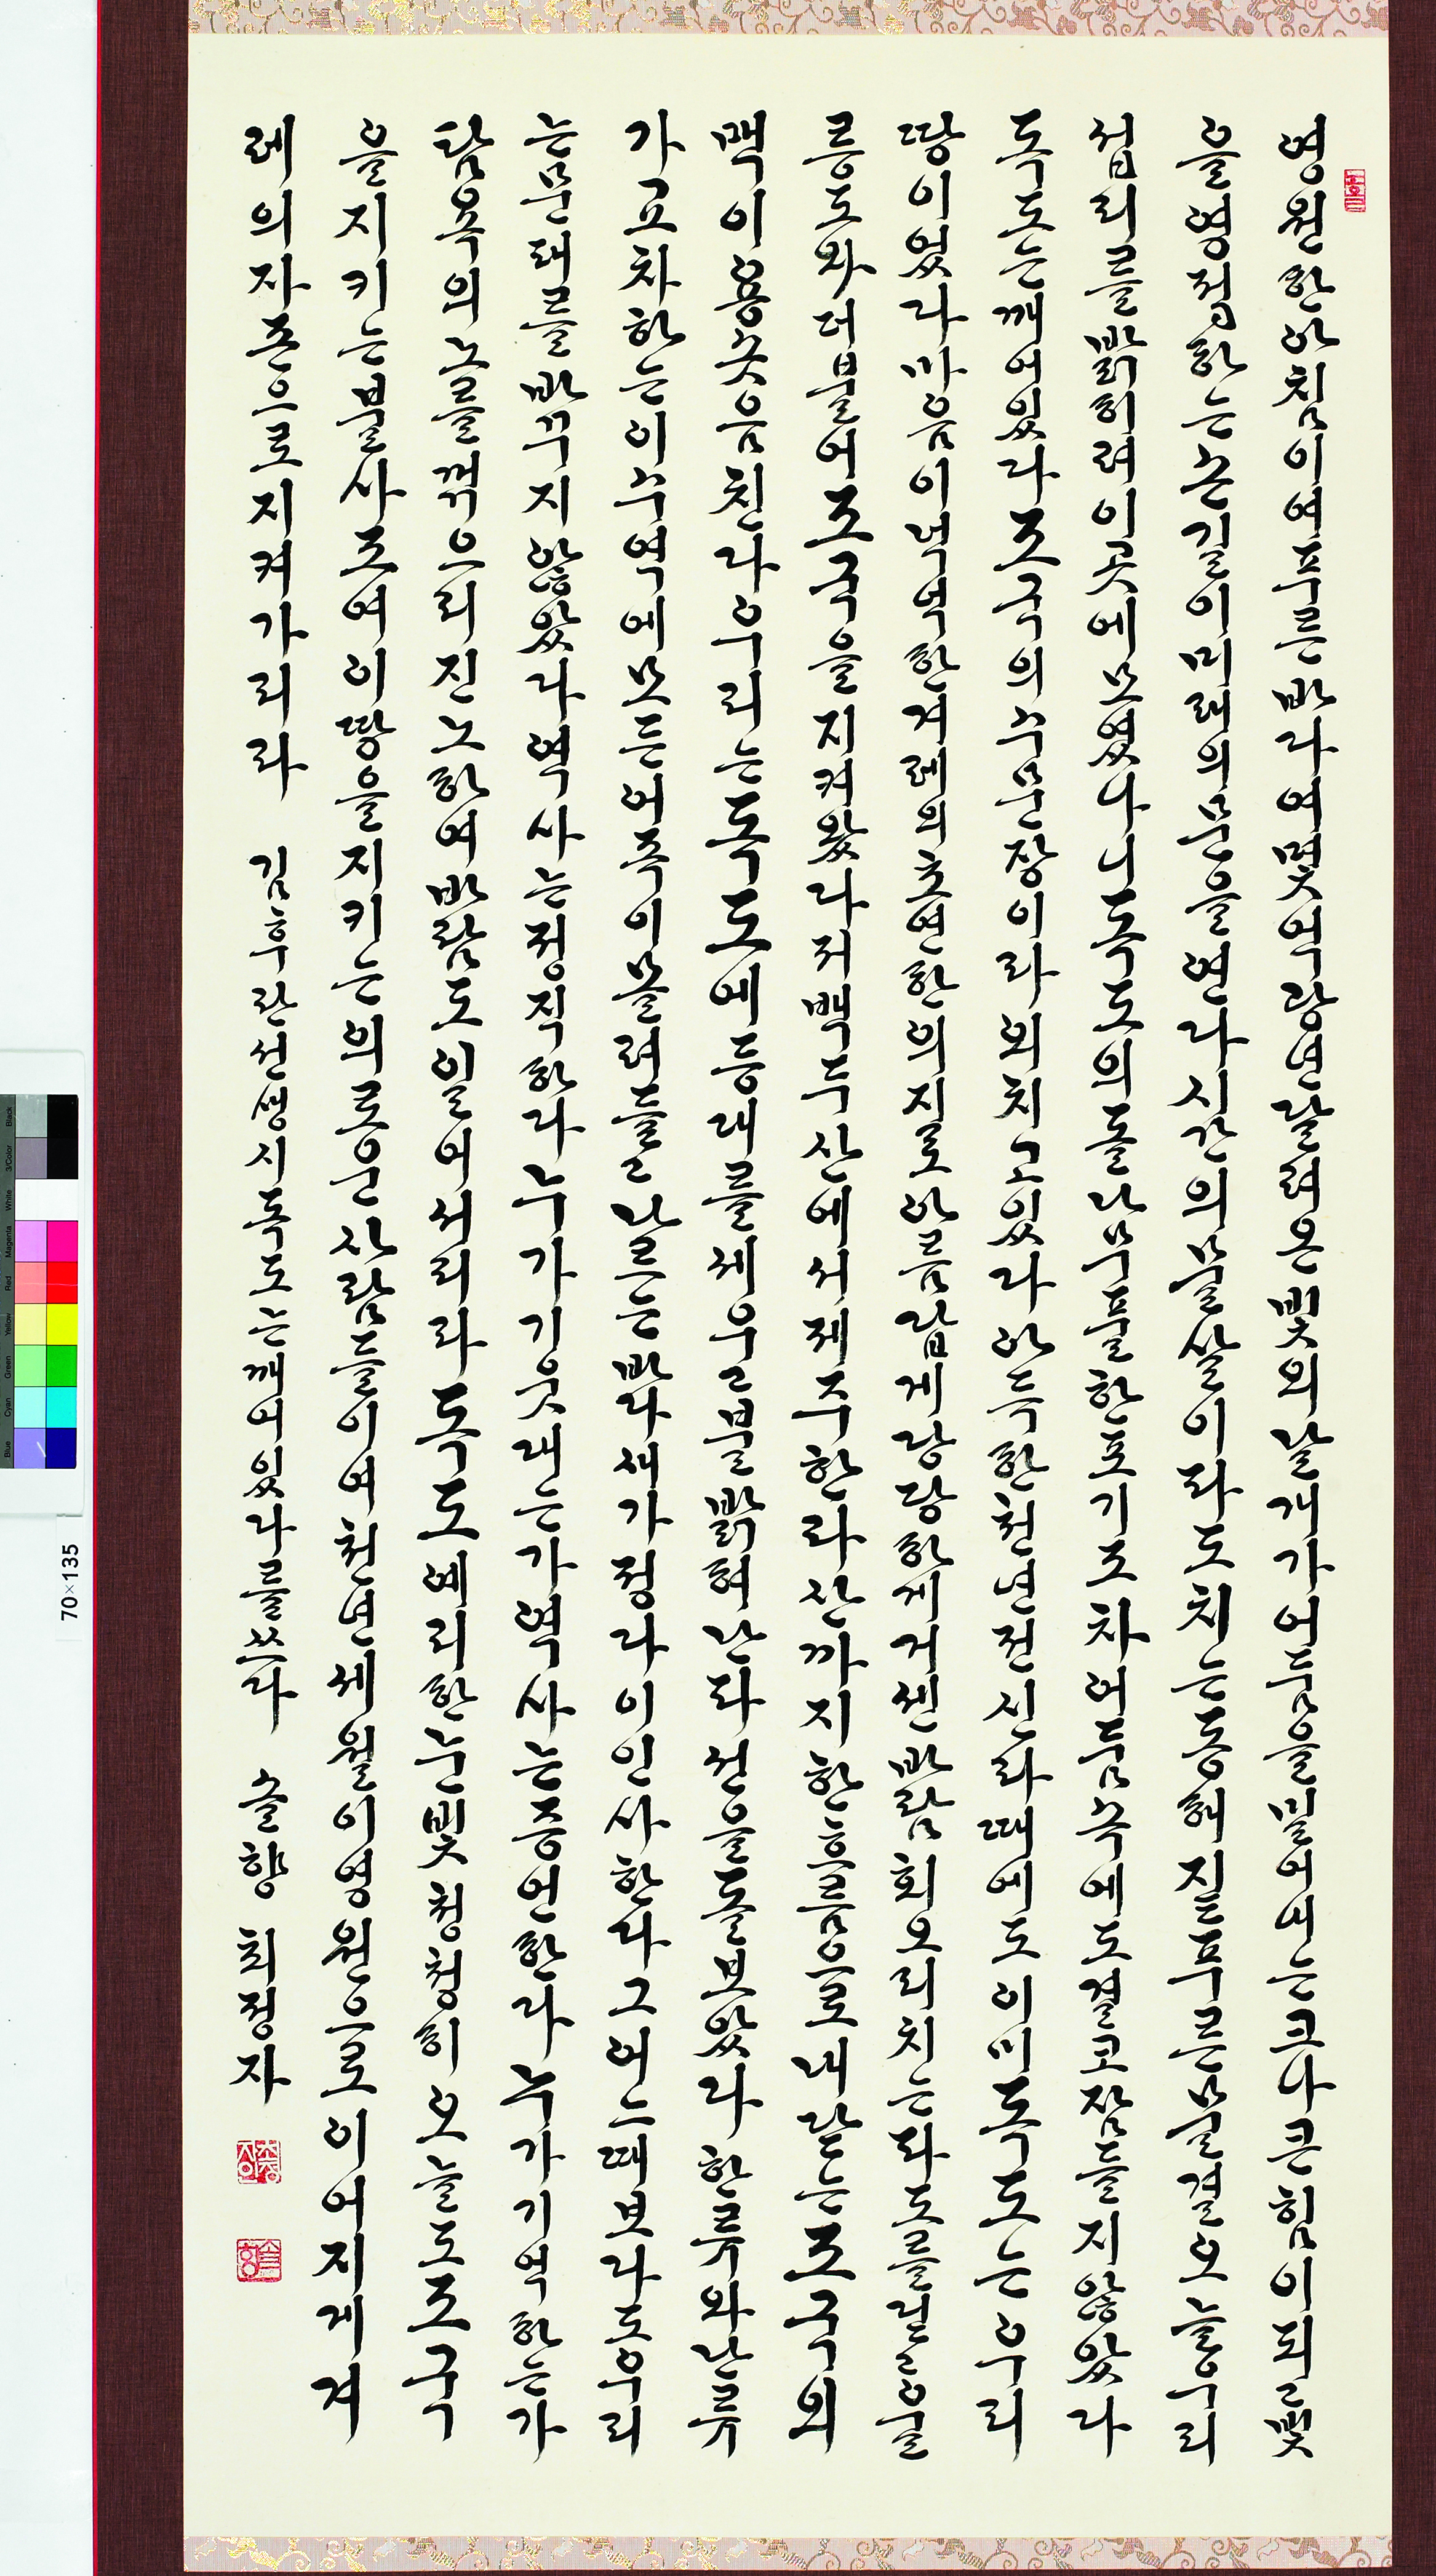 영원한아침이여푸른바다여몇억광년달려온빛의날개가어둠을밀어내는크나큰힘이되고빛
을영접하는손길이미래의문을연다시간의물살이파도치는동해짙푸른물결오늘우리
섭리를밝히려이곳에모였나니독도의돌나무풀한포기조차어둠속에도결코잠들지않았다
독도는깨어있다조국의수문장이라외치고있다아득한천년전신라때에도이미독도는우리
땅이었다마음이넉넉한겨레의초연한의지로아름답게당당하게거센바람회오리치는파도를딛고울
릉도와더불어조국을지켜왔다저백두산에서제주한라산까지한흐름으로내닫는조국의
맥이용솟음친다우리는독도에등대를세우고불밝혀난파선을돌보았다한류와난류
가교차하는이수역에모든어족이몰려들고나르는바다새가정다이인사한다그어느때보다도우리
는문패를바꾸지않았다역사는정직하다누가기웃대는가역사는증언한다누가기억하는가
탐욕의노를꺾으리진노하여바람도일어서리라독도예리한눈빛청청히오늘도조국
을지키는불사조여이땅을지키는의로운사람들이여천년세월이영원으로이어지게겨
레의자존으로지켜가리라 김후란선생시독도는깨어있다를쓰다 솔향 최정자
70×135
Black
3/Color
White
Magenta
Red
Yellow
Green
Cyan
Blue